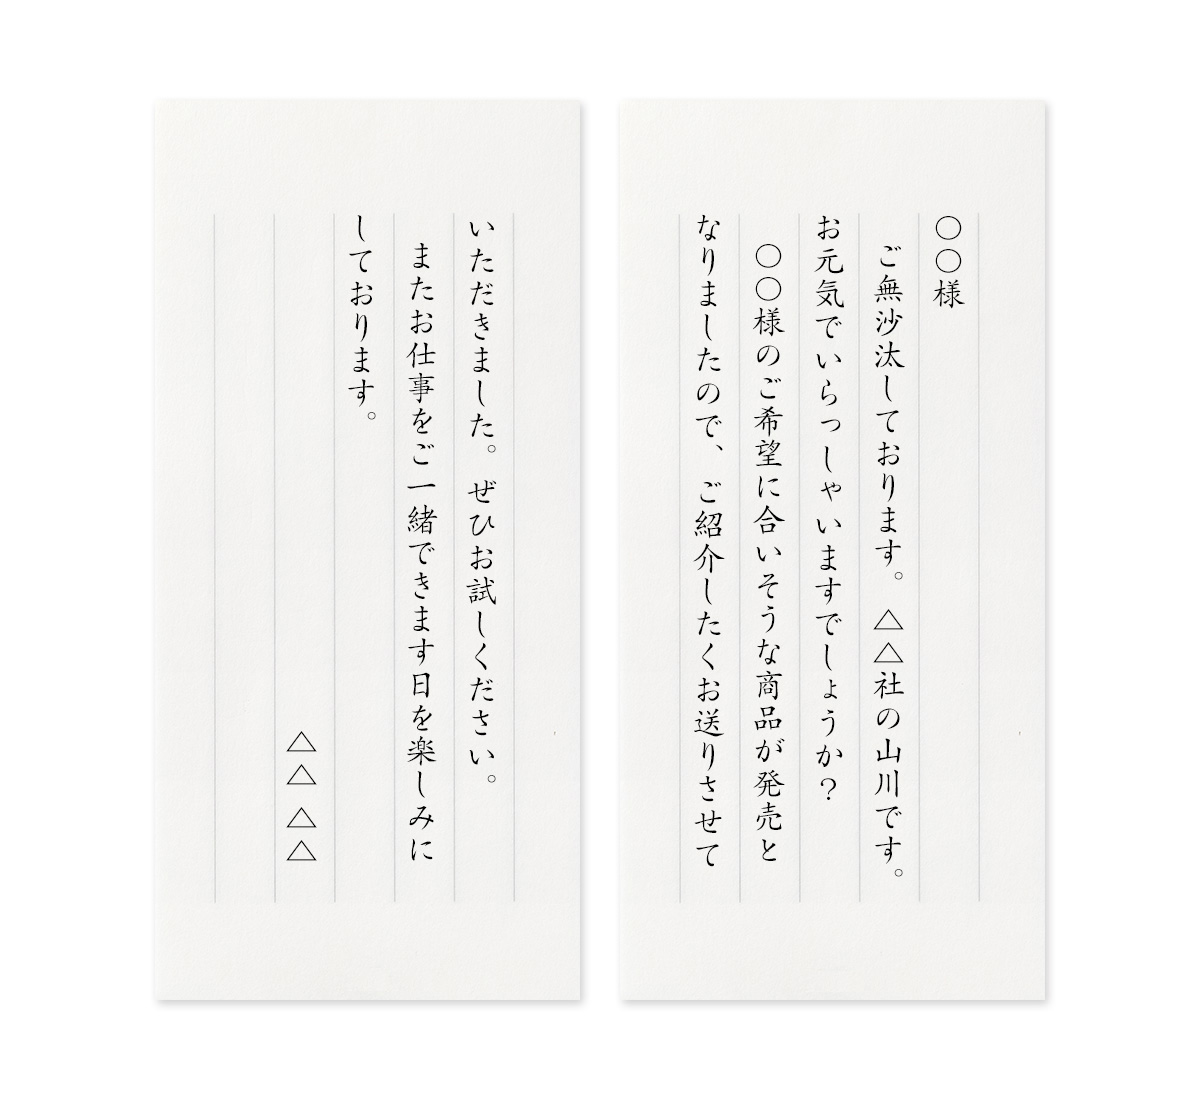 〇〇様
ご無沙汰しております。△△社の山川です。
お元気でいらっしゃいますでしょうか？
〇〇様のご希望に合いそうな商品が発売と
なりましたので、ご紹介したくお送りさせて
いただきました。ぜひお試しください。
またお仕事をご一緒できます日を楽しみに
しております。
△△ △△